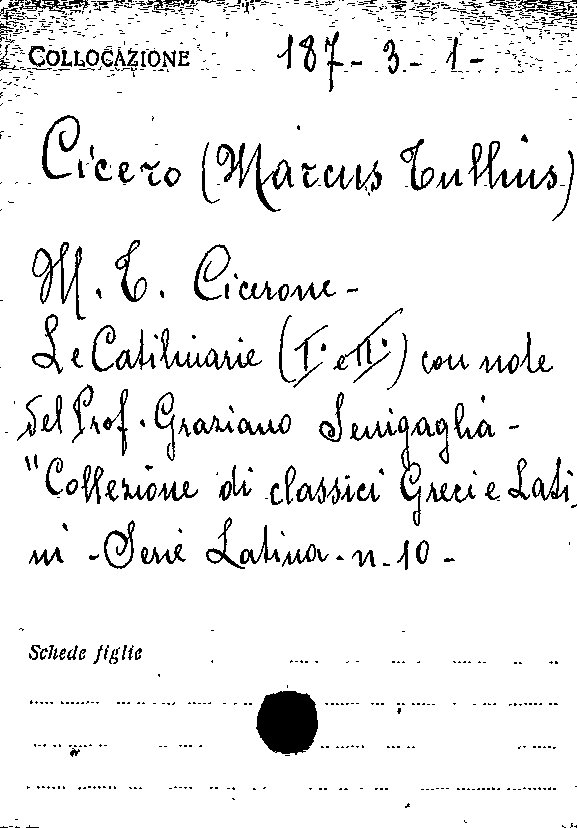 COLLOCAZIONE 187-3-1-
Cicero (Marcus Tullius)
M. T. Cicerone -
Le Catilinarie (I. e II.) con note
del Prof. Graziano Senigaglia -
"Collezione di classici Greci e Lati-
ni - Serie Latina - n. 10 -
Schede figlie